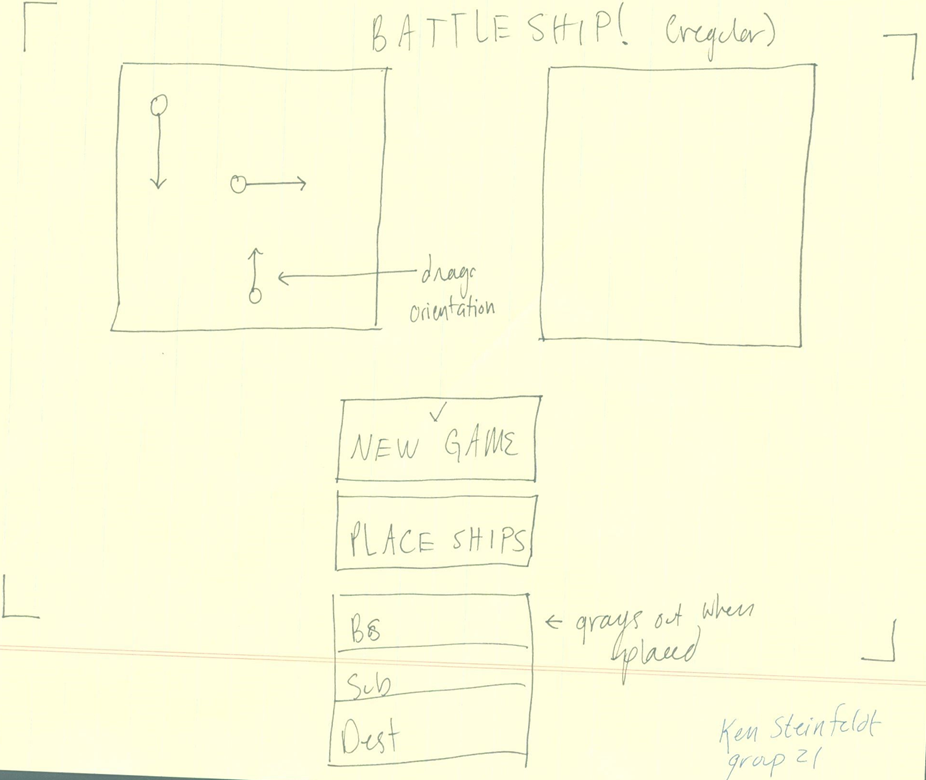 BATTLESHIP! (regular)
drags
orientation
NEW GAME
PLACE SHIPS
BS
← grays out when
placed
Sub
Dest
Ken Steinfeldt
group 21